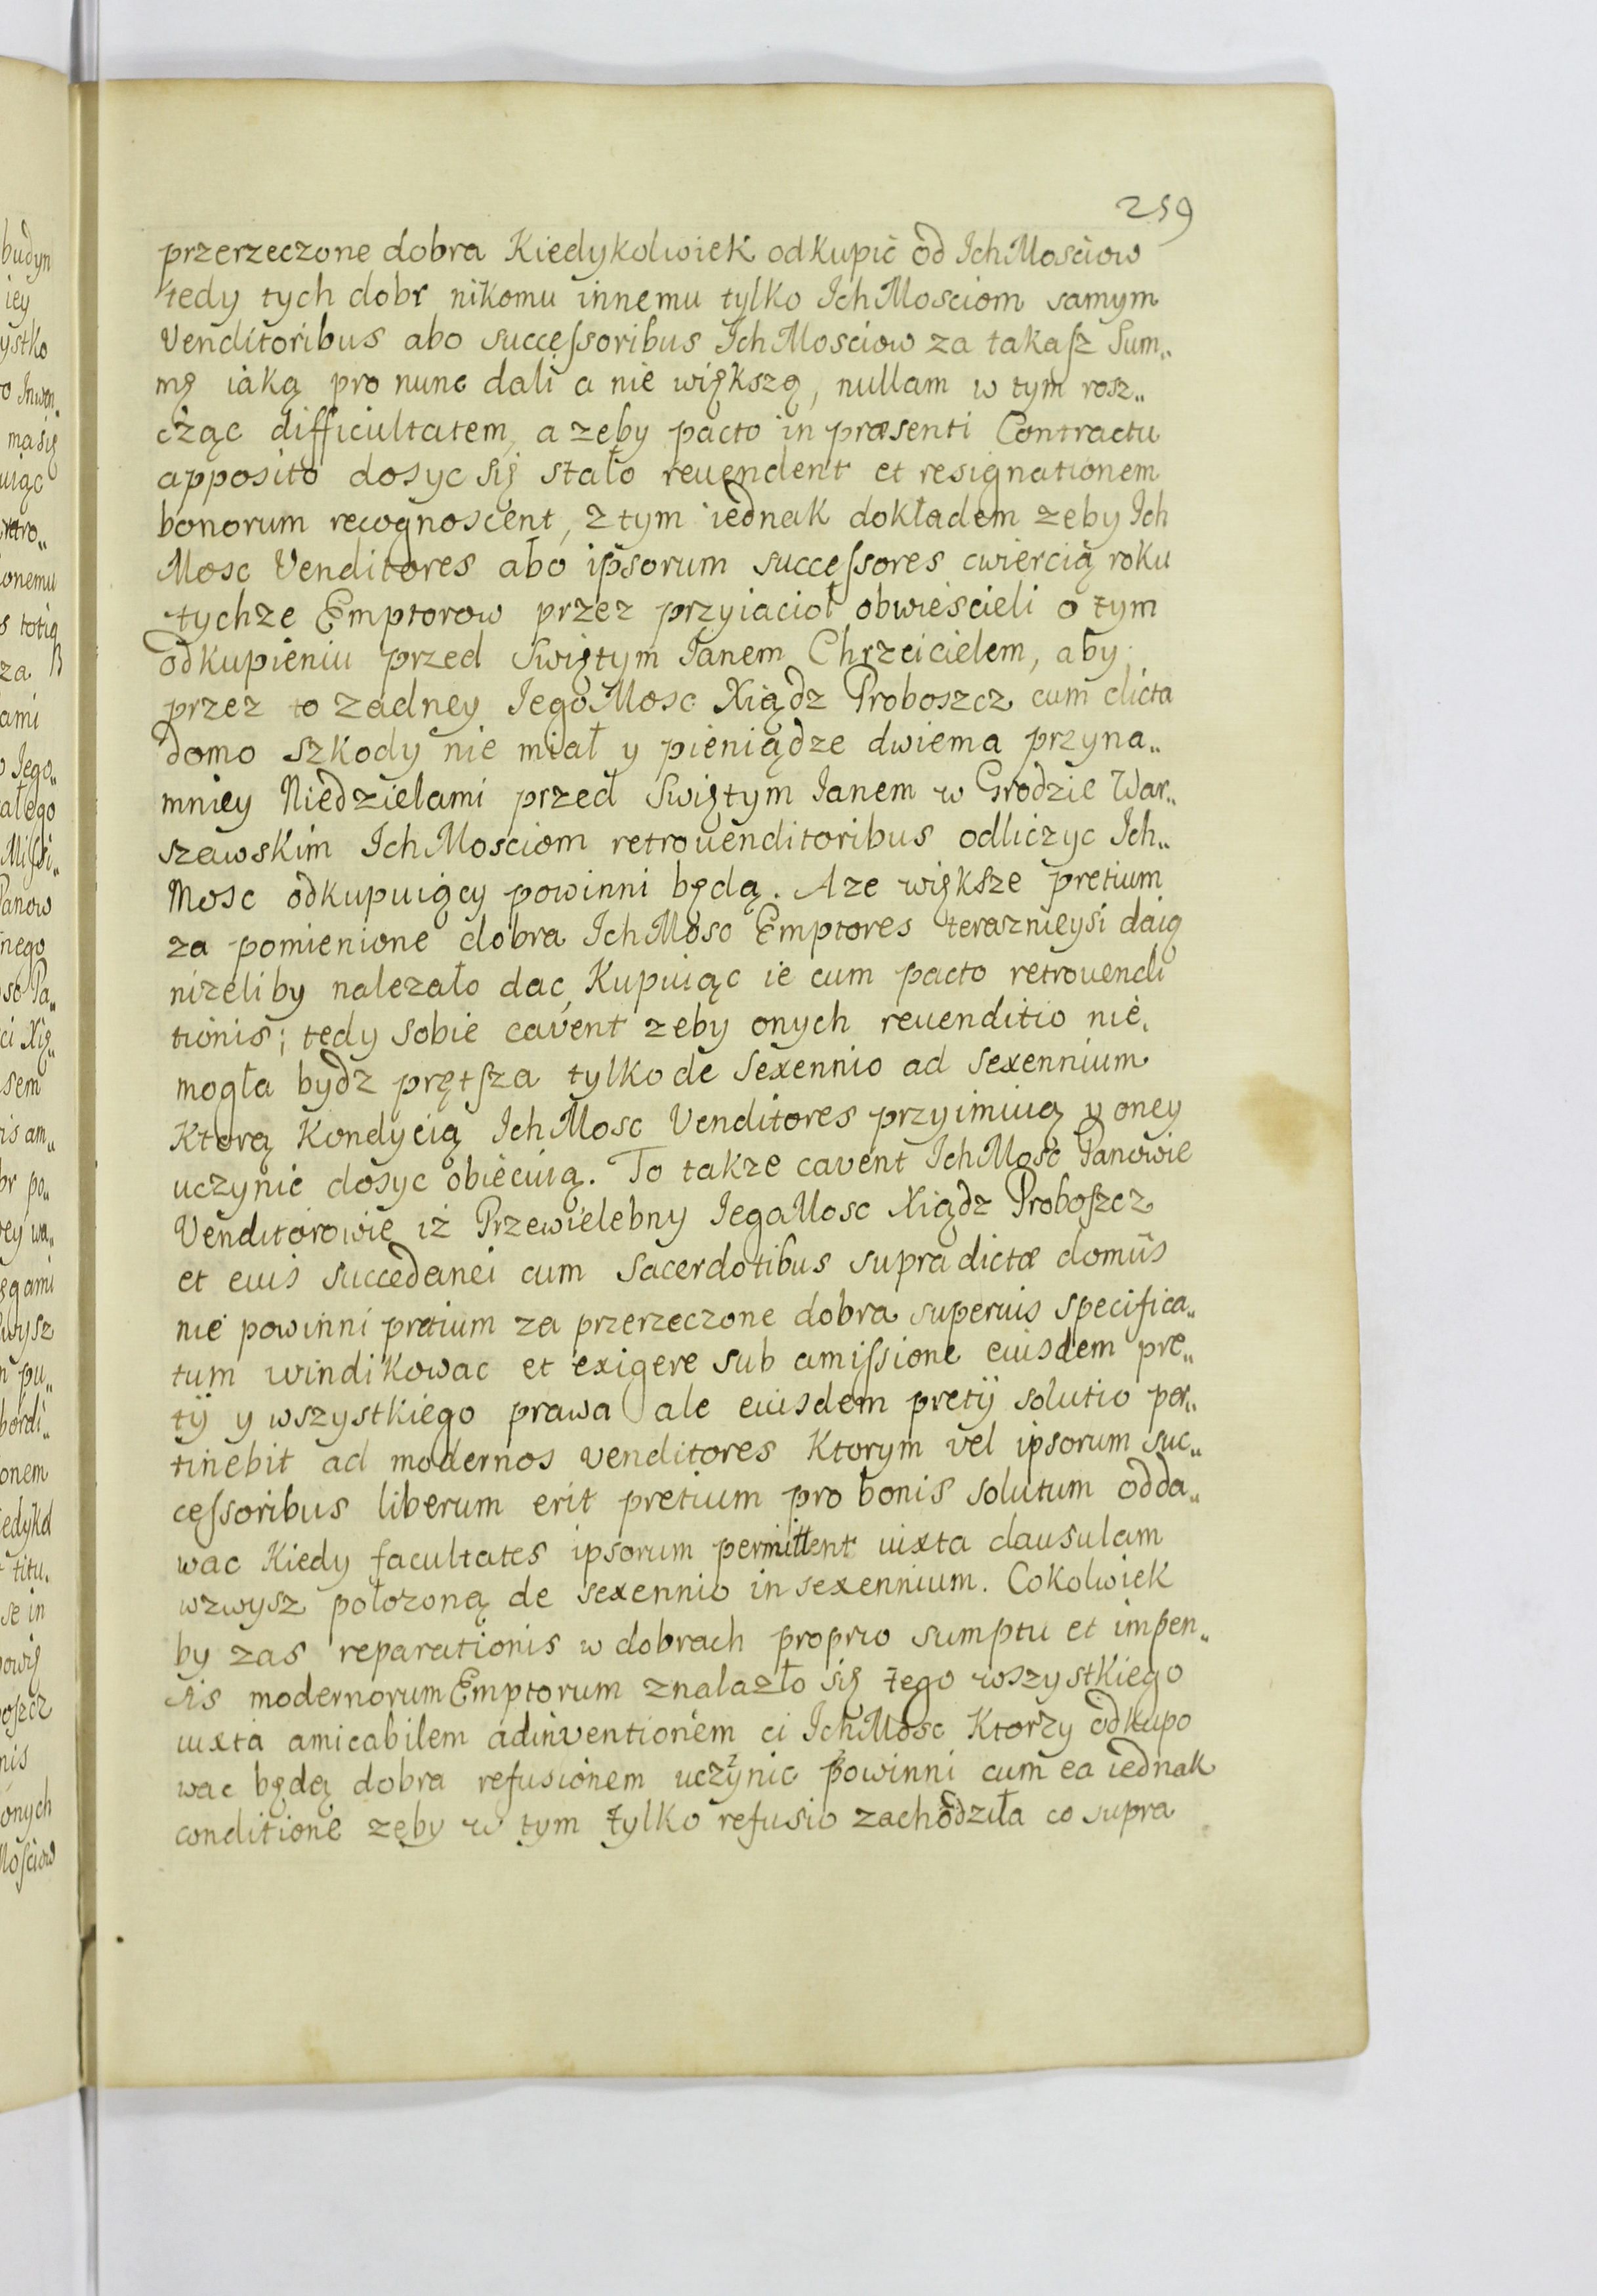 259
przerzeczone dobra Kiedykolwiek odkupić od Ich Mosciow
tedy tych dobr nikomu innemu tylko Ich Mosciom samym
Venditoribus abo succeſsoribus Ich Mosciow za takaſz Sum„
mę iaką pro nunc dali a nie większą, nullam w tym rosz„
cząc difficultatem, a zeby pacto in præsenti Contractu
apposito dosyc się stało reuendent et resignationem
bonorum recognoscent, z tym iednak dokładem zeby Ich
Mosc Venditores abo ipsorum succeſsores cwiercią roku
tychze Emptorow przez przyiacioł obwieścieli o tym
odkupieniu przed Swiętym Ianem Chrzcicielem, aby
przez to zadney Iego Mosc Xiądz Proboszcz cum dicta
domo szkody nie miał y pieniądze dwiema przyna„
mniey Niedzielami przed Swiętym Ianem w Grodzie War„
szawskim Ich Mosciom retrouenditoribus odliczyc Ich„
Mosc odkupuiący powinni będą. A ze większe pretium
za pomienione dobra Ich Mosc Emptores terasznieysi daią
nizeliby nalezało dac, Kupuiąc ie cum pacto retrouendi
tionis; tedy sobie cavent zeby onych reuenditio nie
mogła bydz prętſza tylko de Sexennio ad Sexennium
Ktorą Kondycią Ich Mosc Venditores przyimuią y oney
uczynić dosyc obiecuią. To takze cavent Ich Mosc Panowie
Venditorowie iż Przewielebny Iego Mosc Xiądz Proboſzcz
et eius succedanei cum Sacerdotibus supra dictæ domûs
nie powinni pretium za przerzeczone dobra superius specifica„
tum windikowac et exigere sub amiſsione eiusdem pre„
tÿ y wszystkiego prawa ale eiusdem pretÿ solutio per„
tinebit ad modernos venditores Ktorym vel ipsorum suc„
ceſsoribus liberum erit pretium pro bonis solutum odda„
wac Kiedy facultates ipsorum permittent iuxta clausulam
wzwysz położoną de sexennio in sexennium. Cokolwiek
by zas reparationis w dobrach proprio sumptu et impen„
sis modernorum Emptorum znalazło się tego wszystkiego
iuxta amicabilem adinventionem ci Ich Mosc Ktorzy odkupo
wac będą dobra refusionem uczynic powinni cum ea iednak
conditione zeby w tym tylko refusio zachodziła co supra